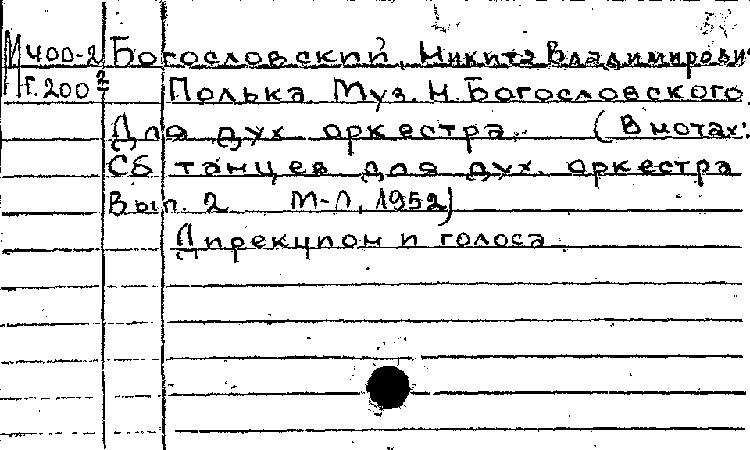 М 400-2 Богословский, Никита Владимирович
Г. 200² Полька. Муз. Н. Богословского.
Для дух. оркестра. (В нотах:
Сб танцев для дух. оркестра
Вып. 2 М-Л, 1952)
Дирекцион и голоса.